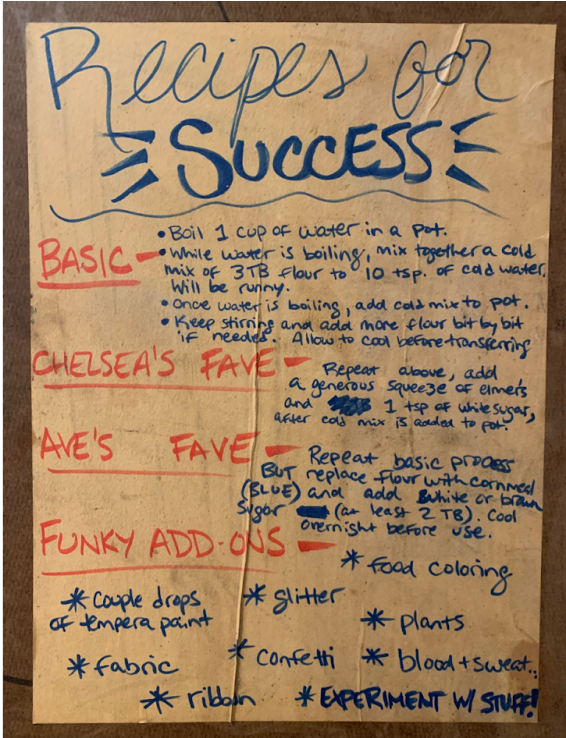 Recipes for
SUCCESS
BASIC -
• Boil 1 cup of water in a pot.
• While water is boiling, mix together a cold
mix of 3TB flour to 10 tsp. of cold water.
Will be runny.
• Once water is boiling, add cold mix to pot.
• Keep stirring and add more flour bit by bit
if needed. Allow to cool before transferring
CHELSEA'S FAVE -
Repeat above, add
a generous squeeze of elmer's
and 1 tsp of white sugar,
after cold mix is added to pot.
AVE'S FAVE -
Repeat basic process
BUT replace flour with cornmeal
(BLUE) and add white or brown
sugar (at least 2 TB). Cool
overnight before use.
FUNKY ADD-ONS -
* food coloring
* Couple drops
of tempera paint
* glitter
* plants
* fabric
* confetti
* blood + sweat..
* ribbon
* EXPERIMENT W/ STUFF!